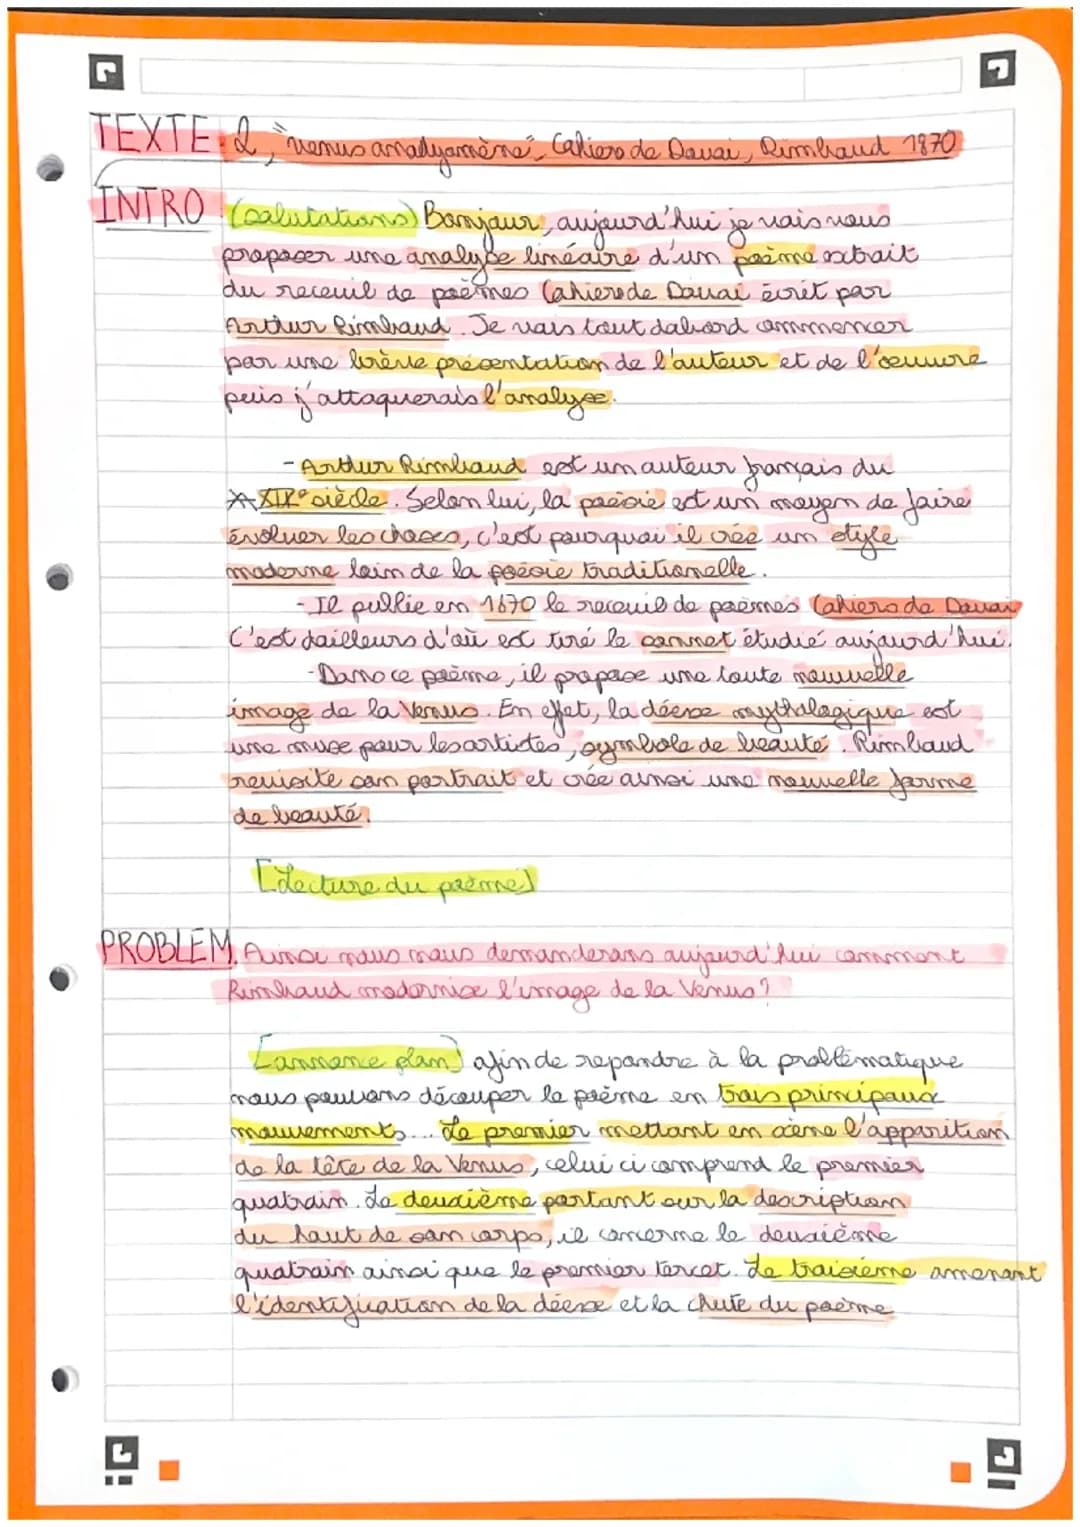 TEXTE 2, "venus anadyomène", Cahiers de Douai, Rimbaud 1870
INTRO (salutations) Bonjour, aujourd'hui je vais vous
proposer une analyse linéaire d'un poème extrait
du receuil de poèmes Cahiers de Douai écrit par
Arthur Rimbaud. Je vais tout dabord commencer
par une brève présentation de l'auteur et de l'oeuvre
puis j'attaquerais l'analyse.
- Arthur Rimbaud est un auteur français du
XIXe siècle. Selon lui, la poésie est un moyen de faire
évoluer les choses, c'est pourquoi il crée un style
moderne loin de la poésie traditionelle.
- Il publie en 1670 le receuil de poèmes Cahiers de Douai
C'est dailleurs d'où est tiré le sonnet étudié aujourd'hui.
- Dans ce poème, il propose une toute nouvelle
image de la Venus. En effet, la déesse mythologique est
une muse pour les artistes, symbole de beauté. Rimbaud
revisite son portrait et crée ainsi une nouvelle forme
de beauté.
[Lecture du poème]
PROBLEM. Ainsi nous nous demanderons aujourd'hui comment
Rimbaud modernise l'image de la Venus?
[annonce plan] afin de repondre à la problématique
nous pouvons découper le poème en trois principaux
mouvements... Le premier mettant en scène l'apparition
de la tête de la Venus, celui ci comprend le premier
quatrain. Le deuxième portant sur la description
du haut de son corps, il concerne le deuxième
quatrain ainsi que le premier tercet. Le troisième amenant
l'identification de la déesse et la chute du poème